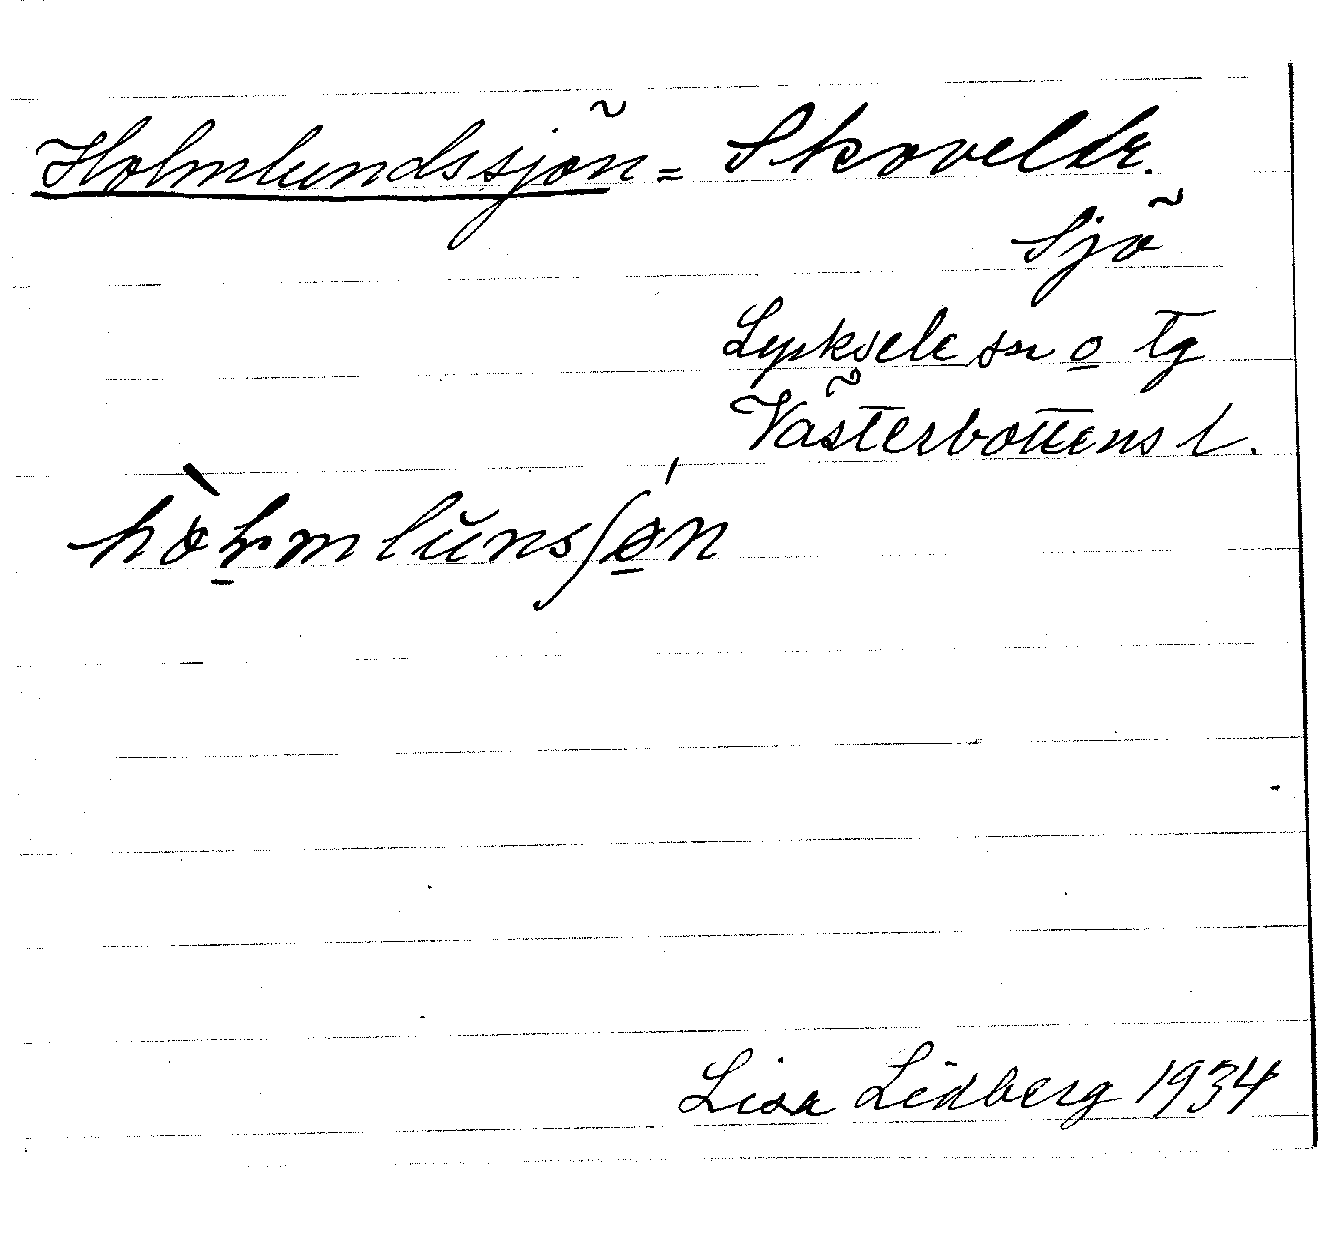 Holmlundssjön = Skoveldr.
Sjö
Lycksele sn o tg
Västerbottens l.
Lisa Lidberg 1934